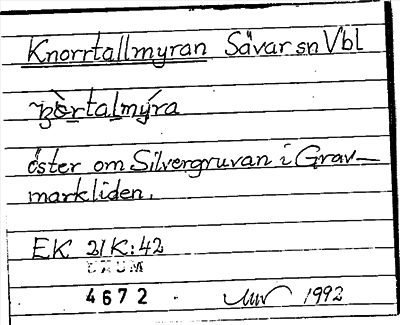 Knorrtallmyran Sävar sn Vbl
öster om Silvergruvan i Grav-
markliden.
EK 21K:42
4672
1992